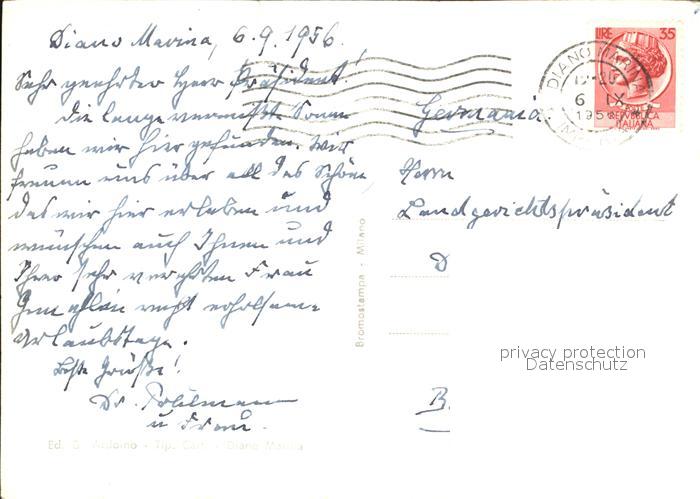 Diano Marina, 6.9.1956.
Sehr geehrter Herr Präsident!
Die lange vermißte Sonne
haben wir hier gefunden. Wir
freuen uns über all das Schöne,
das wir hier erleben und
wünschen auch Ihnen und
Ihrer sehr verehrten Frau
Gemahlin recht erholsame
Urlaubstage.
Beste Grüße!
Dr.
u Frau.
Ed. G. Ardoino - Tip. Cart. - Diano Marina
Bromostampa - Milano
LIRE 35
DIANO MARINA
6 IX
195
REPVBBLICA
ITALIANA
Germania.
Herrn
Landgerichtspräsident
D
B.
privacy protection
Datenschutz